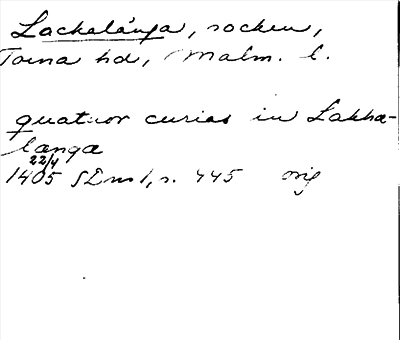 Lackalänga, socken,
Torna hd, Malm. l.
quatuor curias in Lakka-
langa
22/4
1405 SD ns 1, s. 445 orig